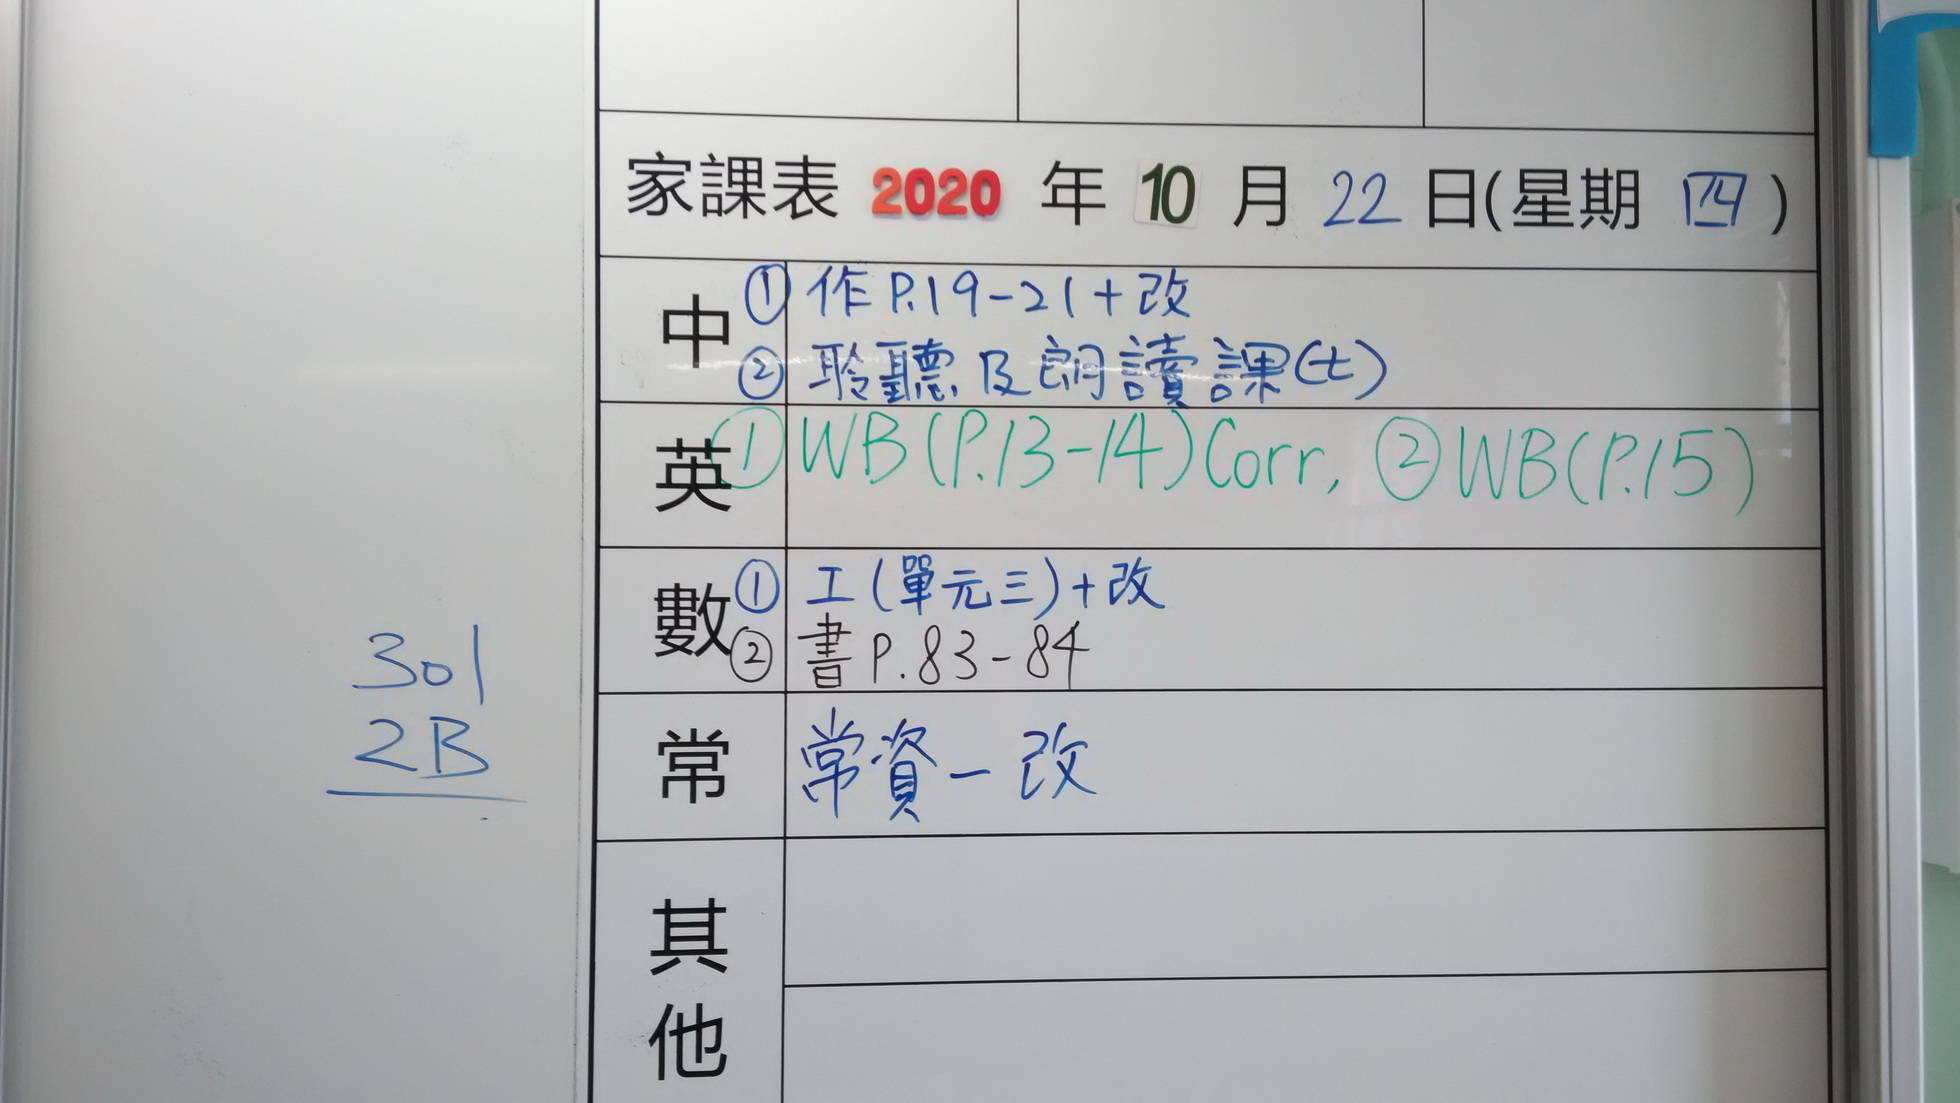 家課表 2020 年 10 月 22 日(星期 四)
中 ① 作P.19-21+改
② 聆聽及朗讀課(七)
英 ① WB(P.13-14)Corr, ② WB(P.15)
數 ① 工(單元三)+改
② 書P.83-84
常 常資一改
其他
301
2B